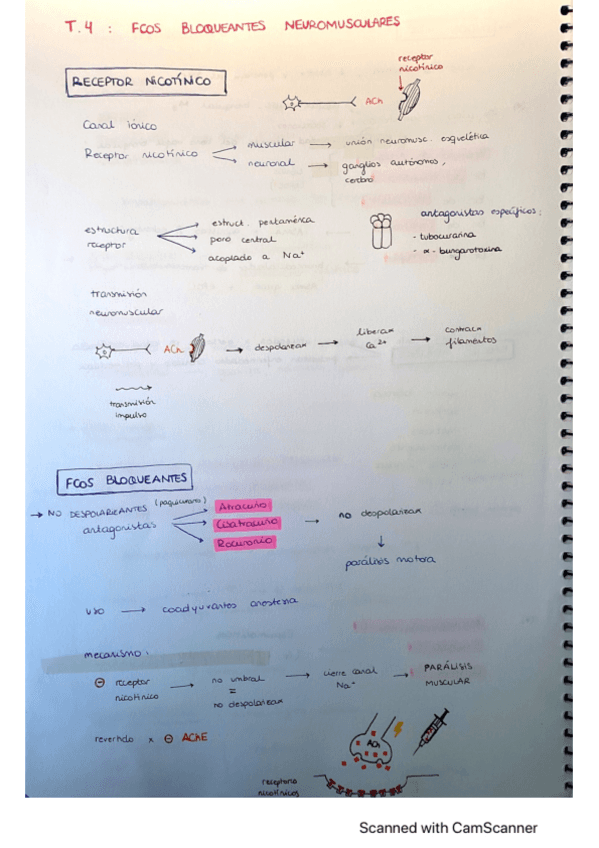 T.4 : FCOS BLOQUEANTES NEUROMUSCULARES
RECEPTOR NICOTÍNICO
receptor
nicotínico
ACh
Canal iónico
Receptor nicotínico
muscular → unión neuromusc. esquelética
neuronal → ganglios autónomos,
cerebro
estructura
receptor
estruct. pentamérica
poro central
acoplado a Na⁺
antagonistas específicos:
- tubocurarina
- α-bungarotoxina
transmisión
neuromuscular
ACh → despolarizar → liberar Ca²⁺ → contraer filamentos
transmisión
impulso
FCOS BLOQUEANTES
→ NO DESPOLARIZANTES (paquicurares)
antagonistas
Atracurio
Cisatracurio
Rocuronio
→ no despolarizar
↓
parálisis motora
uso → coadyuvantes anestesia
mecanismo:
⊖ receptor nicotínico → no umbral = no despolarizar → cierre canal Na⁺ → PARÁLISIS MUSCULAR
revertido x ⊖ AChE
ACh
receptores
nicotínicos
Scanned with CamScanner